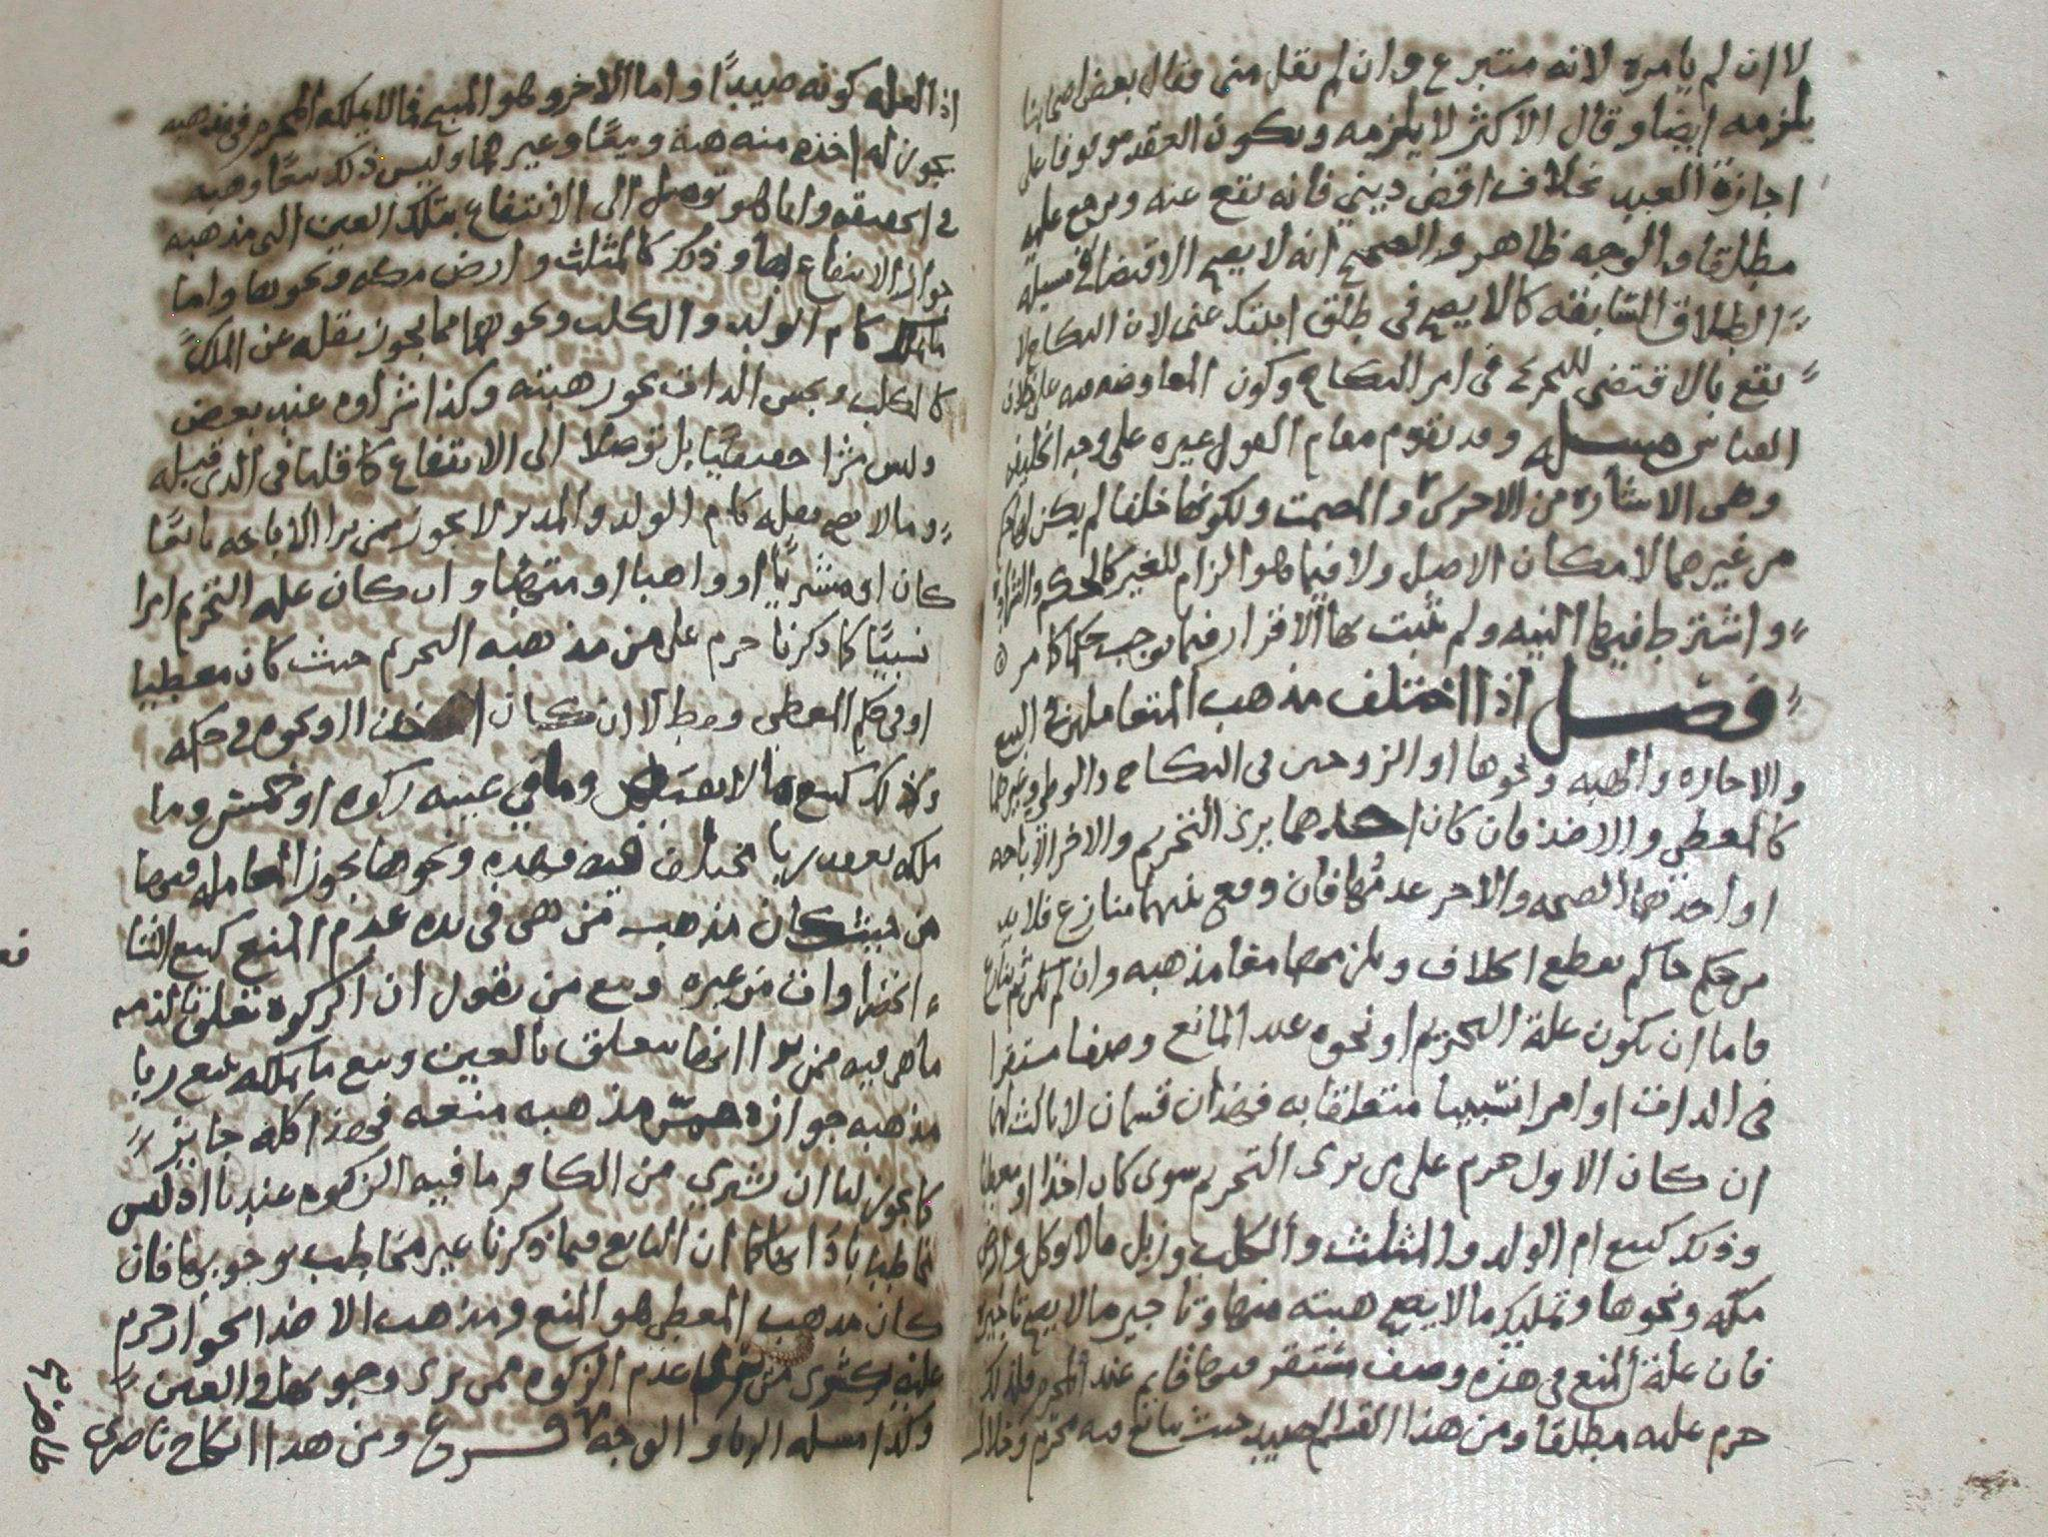 لا ان لم يامره لانه متبرع وان لم يقل مني وقال بعض اصحابنا
يلزمه ايضا وقال الاكثر لا يلزمه ويكون العقد موقوفا على
اجازة العبد بخلاف اقض ديني فانه يقع عنه ويرجع عليه
مطلقا والوجه ظاهر والصحيح انه لا يصح الاقتضا في مسيله
الطلاق السابقه كالا يصح في طلق ابنتك عني لان النكاح لا
يقع بالاقتضى للتحرى في امر النكاح وكون المعاوضه فيه على خلاف
القياس مسله وقد يقوم مقام القول غيره على وجه الخليفه
وهي الاشاره من الاخرس والمصمت ولكونها خلفا لم يكن لها حكم
من غيرهما لامكان الاصل ولا فيما هو الزام للغير كالحكم والشهادة
واشترط فيها النيه ولم يثبت بها الاقرار فيما يوجب حكما كما مر
فصل اذا اختلف مذهب المتعاملين في البيع
والاجاره والهبه ونحوها او الزوجين في النكاح والوطي وغيرهما
كالمعطي والاخذ فان كان احدهما يرى التحريم والاخر الاباحه
او احدهما الصحه والاخر عدمها فان وقع بينهما تنازع فلا بد
من حكم حاكم يقطع الخلاف ويلزمهما معا مذهبه وان لم يكن ثم تنازع
فاما ان يكون علة التحريم او نحوه عند المانع وصفا مستقرا
في الذات او امرا نسبيا متعلقا به فهذان قسمان لا ثالث لهما
ان كان الاول حرم على من يرى التحريم سوى كان اخذا او معطيا
وذلك كبيع ام الولد والمثلث والكلب وزبل مالا يوكل وارض
مكه ونحوها وتمليك مالا يصح هبته منها وتاجير مالا يصح تاجيره
فان علة المنع في هذه وصف مستقر فيها قايم عند المحرم فلذلك
حرم عليه مطلقا ومن هذا القسم الصيد حيث تبايع فيه محرم وحلال
اذ العله كونه صيدا واما الاخر وهو المبيح فالا يملكه المحرم في مذهبه
يجوز له اخذه منه هبة وبيعا وغيرهما وليس ذلك بيعا وهبه
في الحقيقه وانما هو توصل الى الانتفاع بتلك العين التي مذهبه
جواز الانتفاع بها وذلك كالمثلث وارض مكه ونحوها واما
ما يملك كام الولد والكلب ونحوهما مما يجوز نقله عن الملك
كالكلب ونجس الذات يجوز هبته وكذا شراوه عند بعض
وليس شرا حقيقيا بل توصلا الى الانتفاع كما قلنا في الذي قبله
وما لا يصح نقله كام الولد والمدبر لا يجوز ممن يرا الاباحه بايعا
كان او مشتريا او واهبا او متهبا وان كان علة التحريم امرا
نسبيا كما ذكرنا حرم على من مذهبه التحريم حيث كان معطيا
او في حكم المعطي وقط لا ان كان اخذا او نحوه في حكمه
وذلك كبيع ما لا يقبض وما في عينه زكوه او خمس وما
ملكه بعقد ربا مختلف فيه فهذه ونحوها يجوز المعامله فيها
من حيث كان مذهب من هي في يده عدم المنع كبيع الشا
الخضراوات من غيره وبيع من يقول ان الزكوة تتعلق بالذمه
ما هي فيه ممن يرا انها تتعلق بالعين وبيع ما يملكه ببيع ربا
مذهبه جوازه ممن مذهبه منعه فهذا كله جايز
كما يجوز لنا ان نشتري من الكافر ما فيه الزكوه عندنا اذ ليس
مخاطبا باداها كما ان البايع فيما ذكرنا غير مخاطب بوجوبها فان
كان مذهب المعطي هو المنع ومذهب الاخذ الجواز حرم
عليه كشرى من يرى عدم الزكوه ممن يرى وجوبها في العين
وكذا مسله الربا والوجه فرع ومن هذا انكاح ناصري